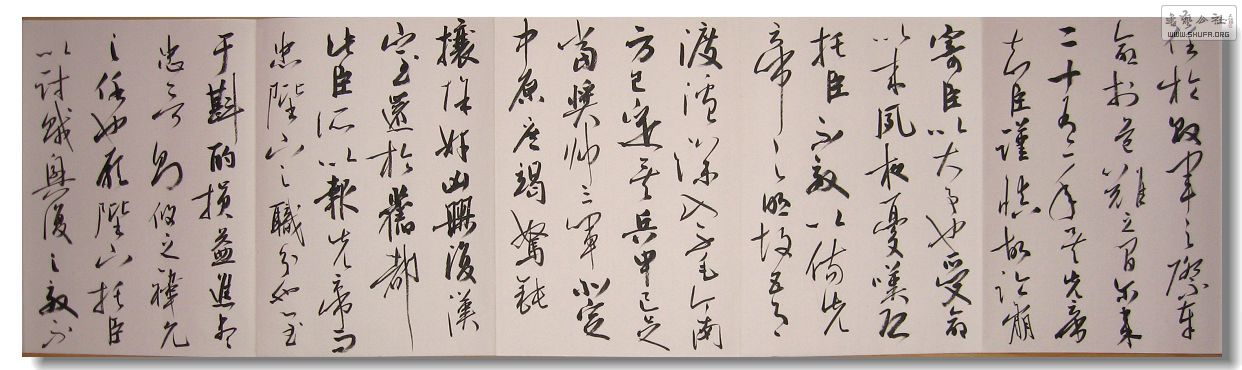 書藝公社
WWW.SHUFA.ORG
任於敗軍之際奉
命於危難之間爾來
二十有一年矣先帝
知臣謹慎故臨崩
寄臣以大事也受命
以來夙夜憂嘆恐
托臣不效以傷先
帝之明故五月
渡瀘深入不毛今南
方已定兵甲已足
當獎帥三軍北定
中原庶竭駑鈍
攘除奸凶興復漢
室還於舊都
此臣所以報先帝而
忠陛下之職分也至
于斟酌損益進盡
忠言則攸之禕允
之任也願陛下托臣
以討賊興復之效不